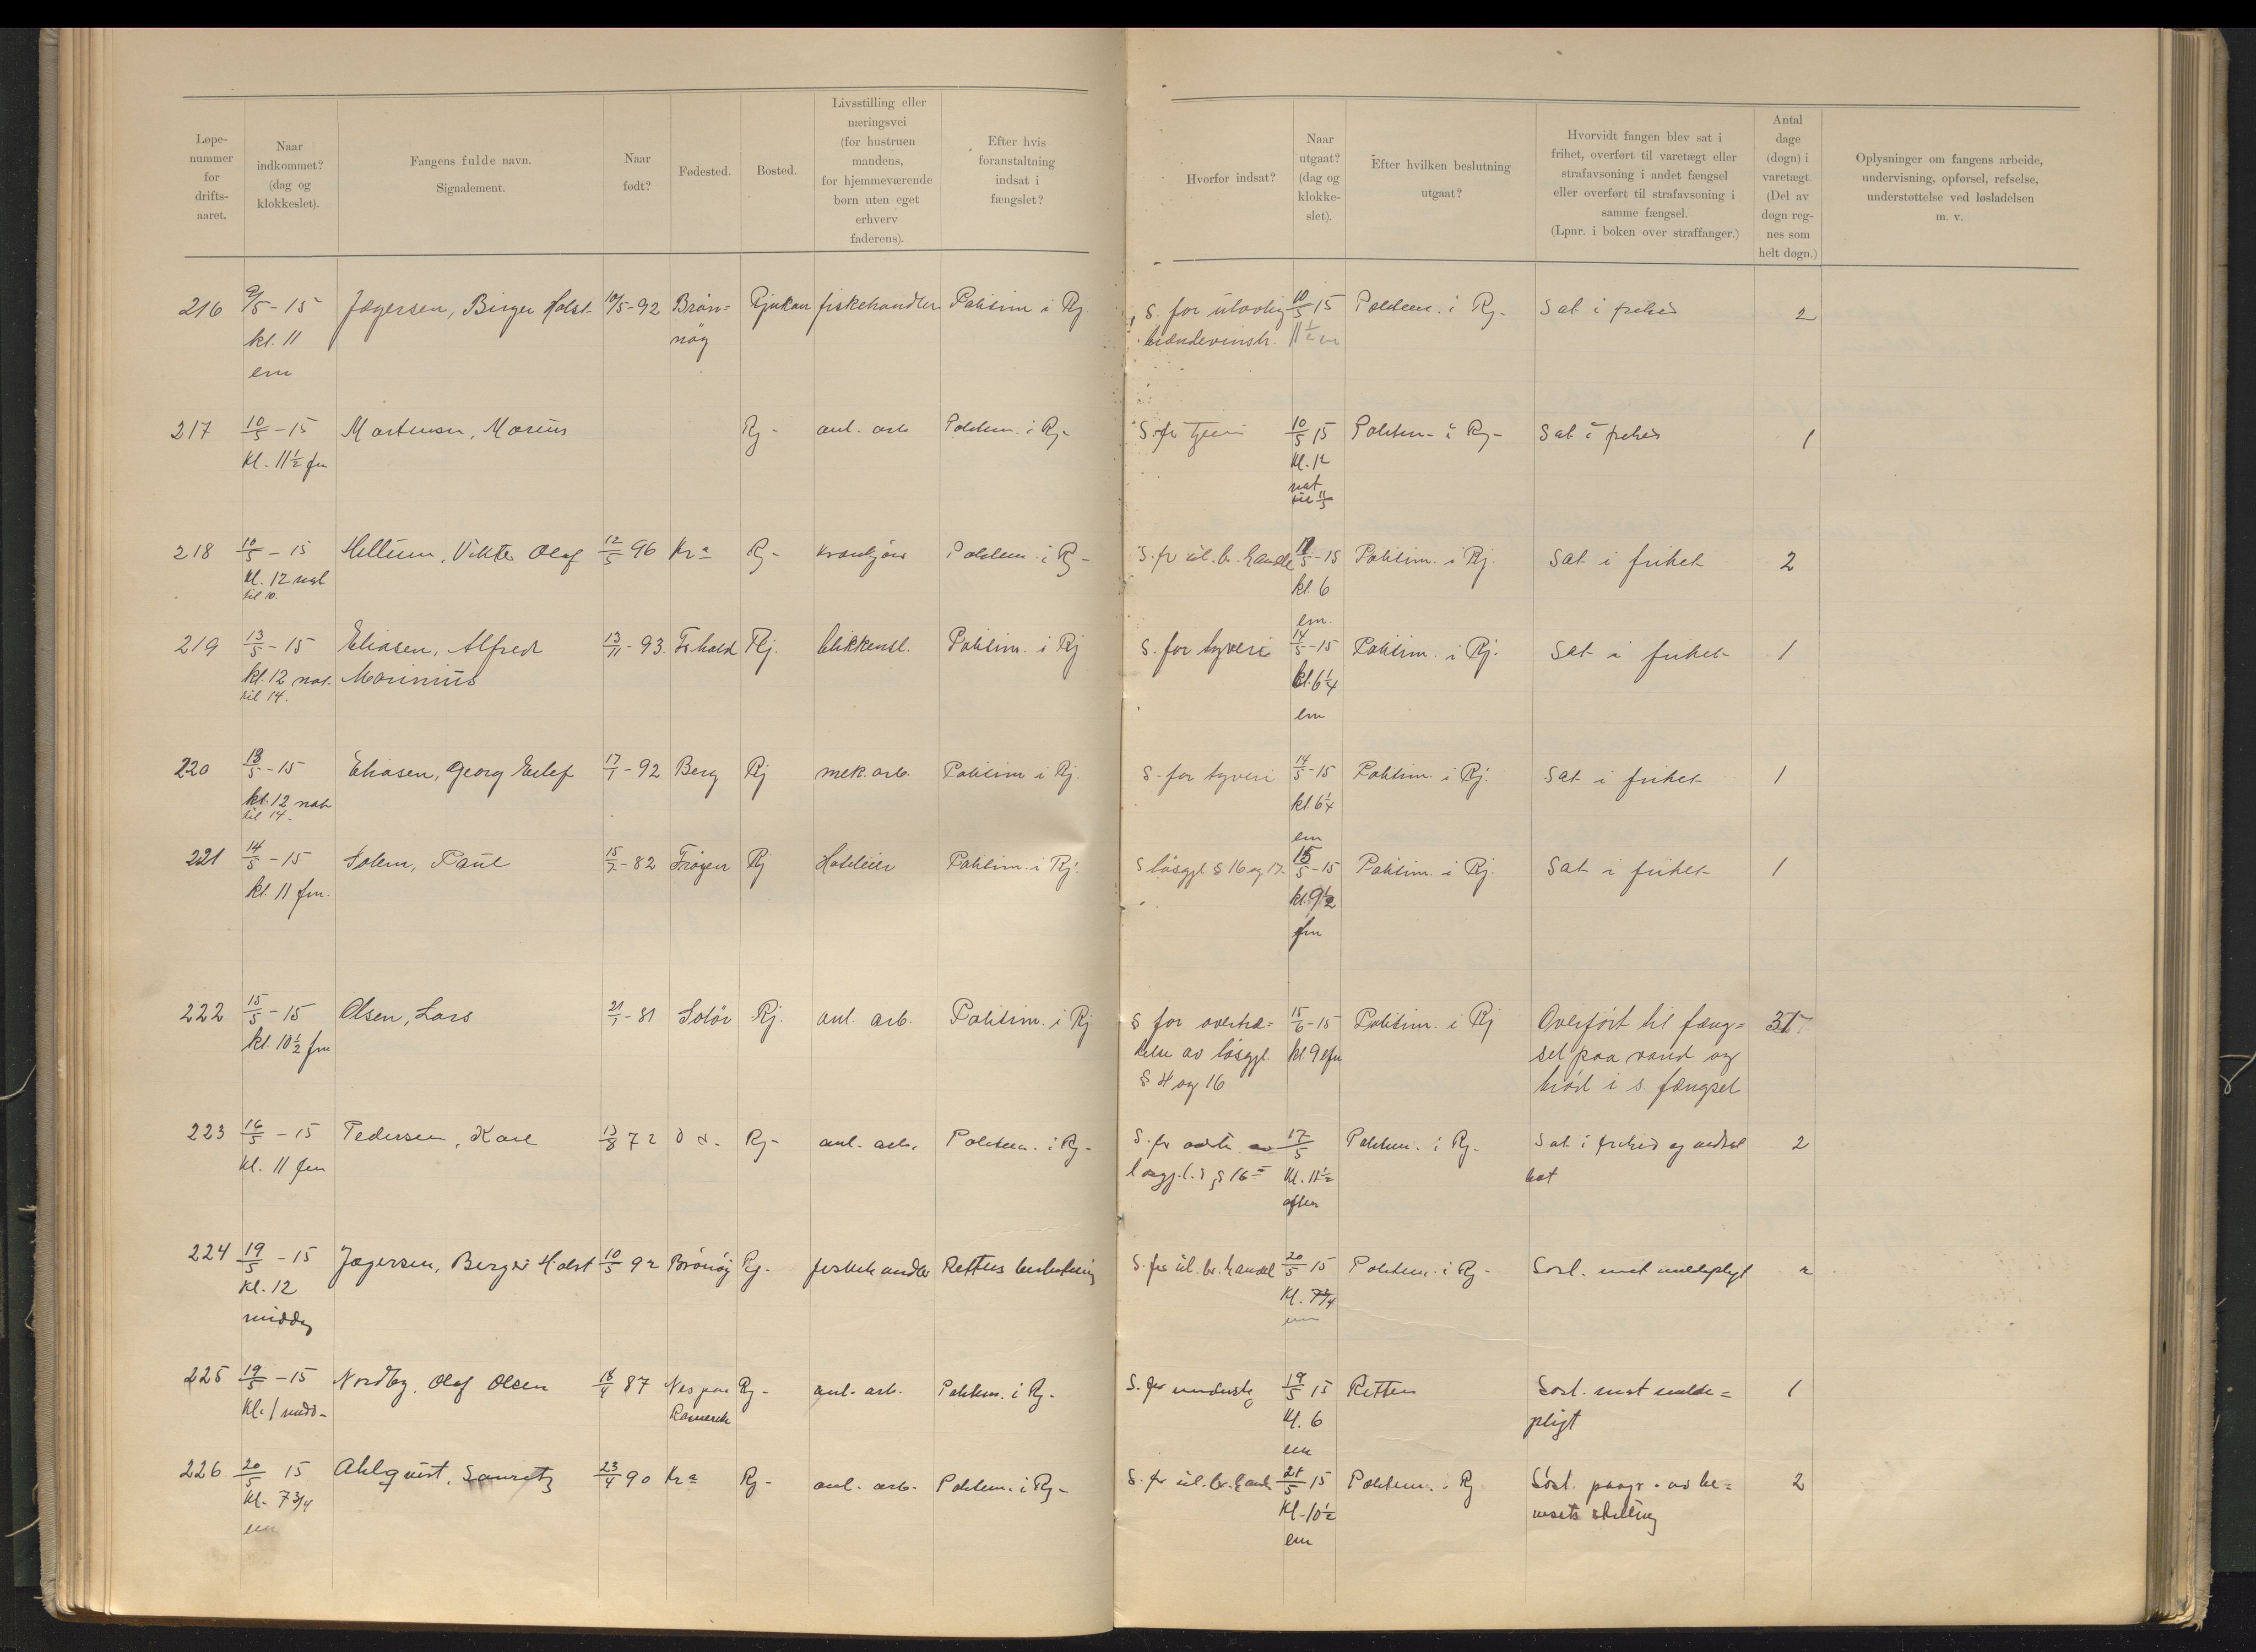 Løpe-
nummer
for
drifts-
aaret.
Naar
indkommet?
(dag og
klokkeslet).
Fangens fulde navn.
Signalement.
Naar
født?
Fødested.
Bosted.
Livsstilling eller
næringsvei
(for hustruen
mandens,
for hjemmeværende
børn uten eget
erhverv
faderens).
Efter hvis
foranstaltning
indsat i
fængslet?
Hvorfor indsat?
Naar
utgaat?
(dag og
klokke-
slet).
Efter hvilken beslutning
utgaat?
Hvorvidt fangen blev sat i
frihet, overført til varetægt eller
strafavsoning i andet fængsel
eller overført til strafavsoning i
samme fængsel.
(Lpnr. i boken over straffanger.)
Antal
dage
(døgn) i
varetægt.
(Del av
døgn reg-
nes som
helt døgn.)
Oplysninger om fangens arbeide,
undervisning, opførsel, refselse,
understøttelse ved løsladelsen
m. v.
216 9/5 - 15 Jægersen, Birger Holst 10/5-92 Brøn= Rjukan fiskehandler Politim i Rj S. for ulovlig 10/5 15 Politim. i Rj. Sat i frihed 2
kl. 11 nøy brændevinsh. 11 1/2 em
em
217 10/5 - 15 Martensen, Marius Rj - anl. arb Politim. i Rj - S. fr tyveri 10/5 15 Politim - i Rj - Sat i frihed 1
Kl. 11 1/2 fm Kl. 12
nat
til 11/5
218 10/5 - 15 Hellum, Olaf 12/5 96 Kra Rj - Politim. i Rj - S. fr ul. br. handel 11/5 - 15 Politim. i Rj. Sat i frihet 2
kl. 12 nat kl. 6
til 10. em.
219 13/5 - 15 Eliasen, Alfred 13/11 - 93. Fr.hald Rj. blikkensl. Politim. i Rj S. for tyveri 14/5 - 15 Politim. i Rj. Sat i frihet 1
kl. 12 nat. Marinius kl. 6 1/4
til 14. em
220 13/5 - 15 Eliasen, Georg Eilef 17/1 - 92 Berg Rj mek. arb. Politim i Rj. S. for tyveri 14/5 - 15 Politim. i Rj. Sat i frihet 1
kl. 12 nat kl. 6 1/4
til 14. em
221 14/5 - 15 Solem, Paul 15/7 - 82 Frøyen Rj Hoteleier Politim. i Rj. S løsgjl § 16 og 17. 15/5 - 15 Politim. i Rj. Sat i frihet 1
kl. 11 fm. kl. 9 1/2
fm
222 15/5 - 15 Olsen, Lars 21/1 - 81 Solør Rj. anl. arb. Politim. i Rj S for overtræ= 15/6 - 15 Politim. i Rj Overført til fæng= 31
kl. 10 1/2 fm delse av løsgjl. kl. 9 sel paa vand og
§ 4 og 16 brød i s. fængsel
223 16/5 - 15 Pedersen, Karl 13/8 72 Rj - anl. arb. Politim. i Rj - S. fr 17/5 Politim. i Rj - Sat i frihed og vedtat 2
Kl. 11 fm løsgj.l. § 16 Kl. 11 1/2 bot
aften
224 19/5 - 15 Jægersen, Berger Holst 10/5 92 Brønøy Rj. fiskehandler Rettens beslutning S. for ul. br. handel 20/5 15 Politim. i Rj - Løsl. mot meldepligt 2
Kl. 12 Kl. 7 3/4
middag em
225 19/5 - 15 Nordby, Olaf Olsen 18/4 87 Nes paa Rj - anl. arb. Politim. i Rj - S. for 19/5 15 Retten Løsl. mot melde= 1
Kl. 1 midd - Romerike Kl. 6 pligt
em
226 20/5 15 Ahlqvist, Lauritz 23/4 90 Kra Rj - anl. arb. Politim. i Rj - S. fr ul. br. hand. 21/5 15 Politim. i Rj Løsl. paagr. av be= 2
Kl. 7 3/4 Kl. 10 1/2
em em